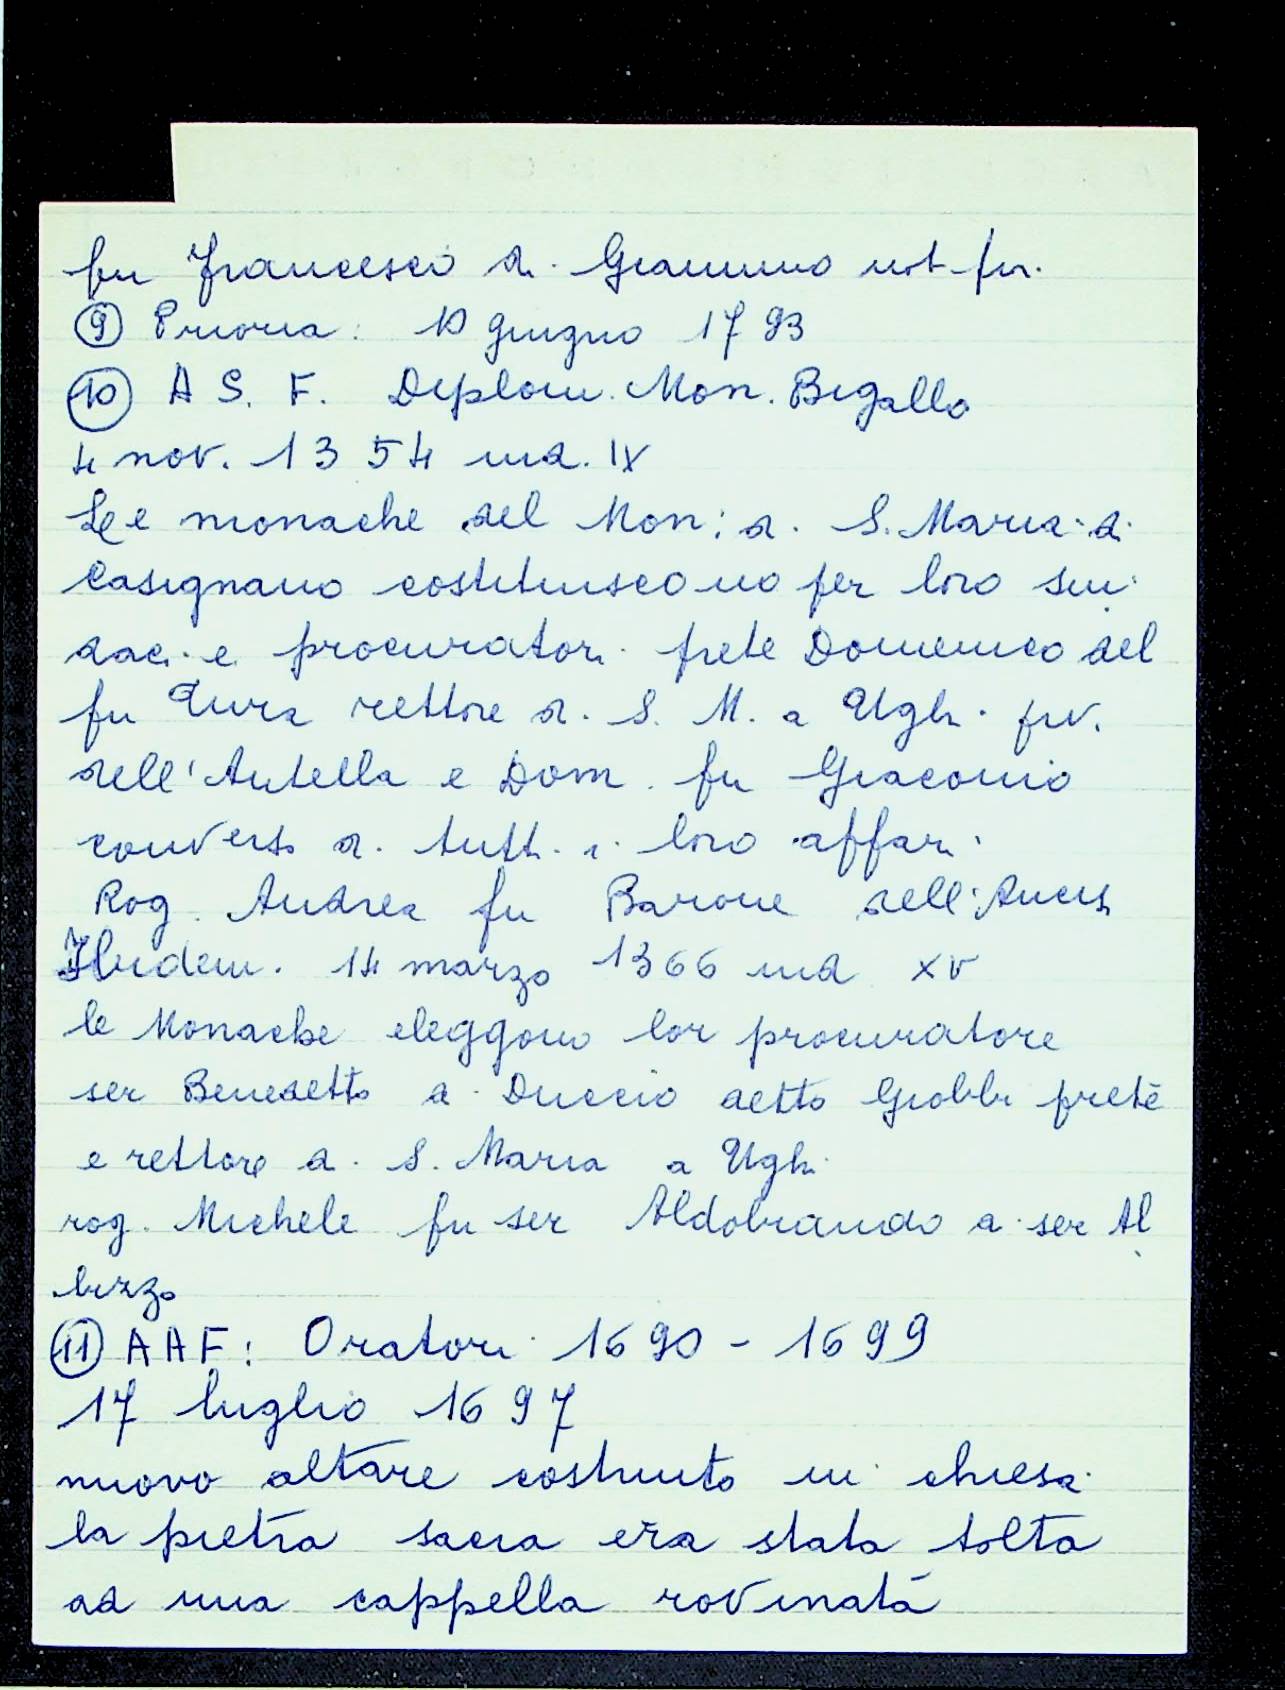 fu Francesco di Giannino not. fior.
⑨ Prioria: 10 giugno 1793
⑩ A S. F. Diplom. Mon. Bigallo
4 nov. 1354 ind. IX
Le monache del Mon: di S. Maria di
Casignano costituiscono per loro sin
daci e procuratori prete Domenico del
fu Tura rettore di S. M. a Ughi piv.
dell'Antella e Dom. fu Giacomo
converso di tutti i loro affari.
Rog. Andrea fu Barone dell'
Ibidem. 14 marzo 1366 ind XV
le Monache eleggono lor procuratore
ser Benedetto di Duccio detto Giobbi prete
e rettore di S. Maria a Ughi
rog. Michele fu ser Aldobrando di ser Al
bizzo
⑪ AAF: Oratori 1690 - 1699
17 luglio 1697
nuovo altare costruito in chiesa
la pietra sacra era stata tolta
ad una cappella rovinata